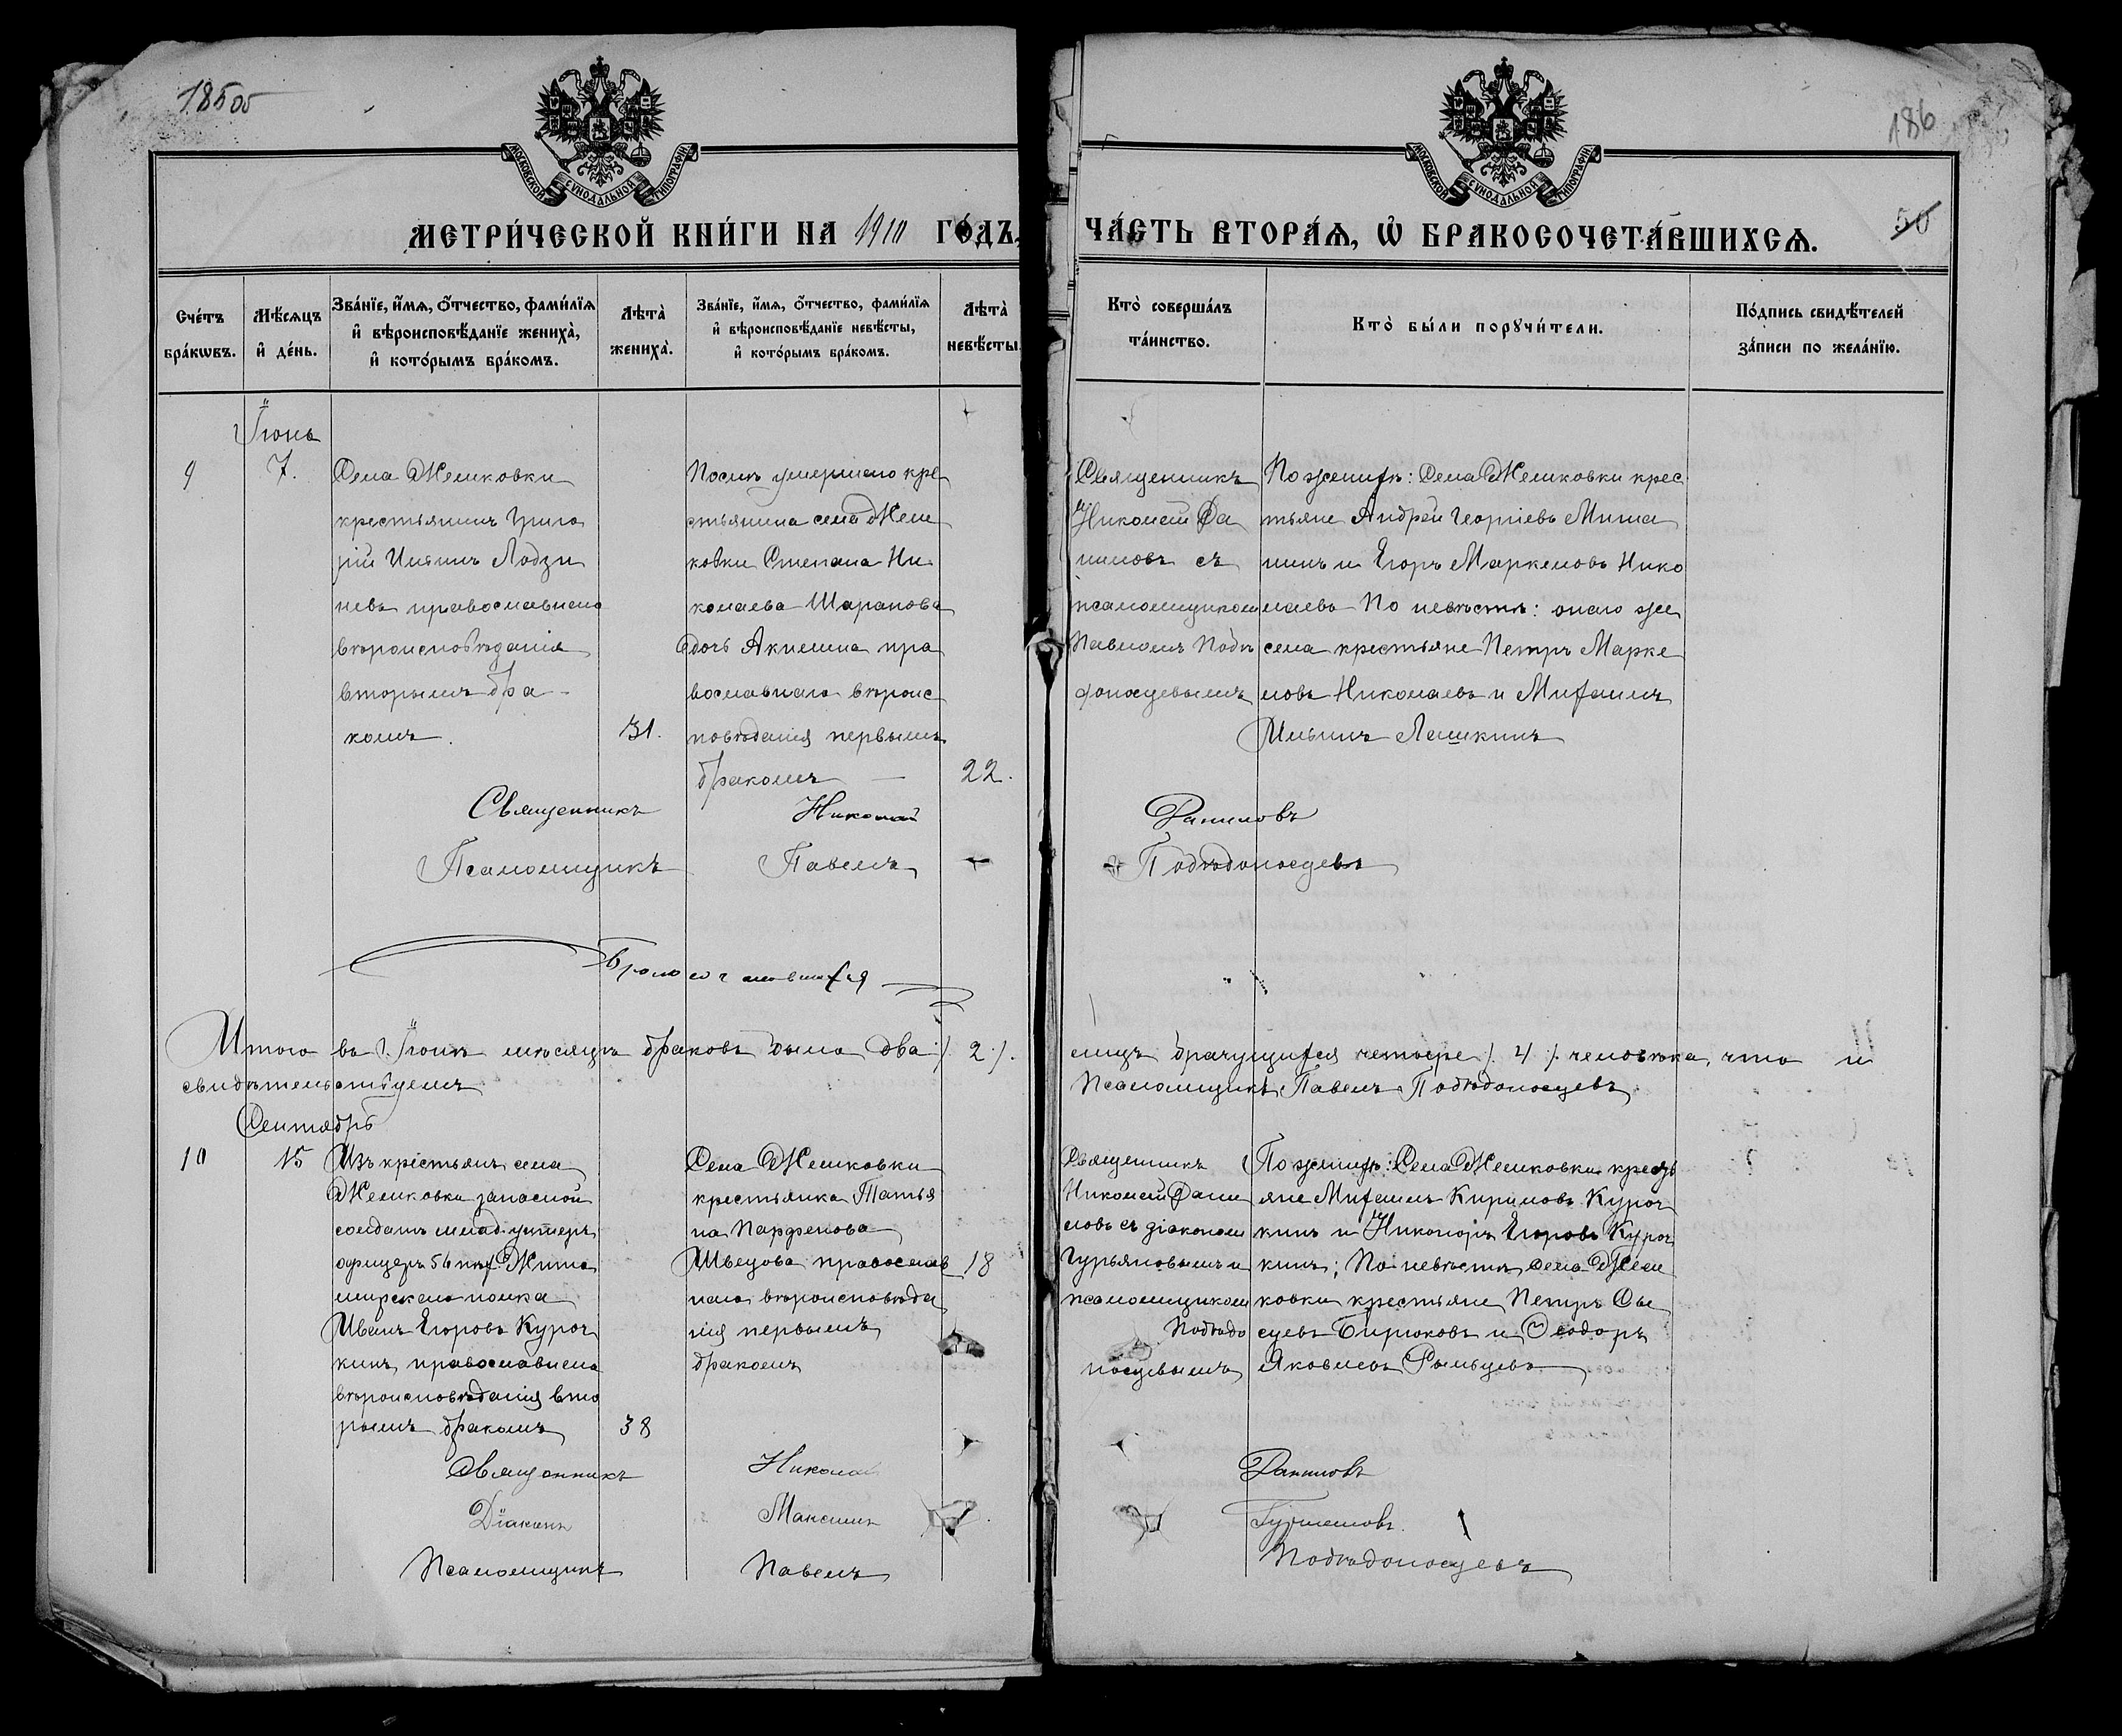 185об
186
50
МОСКОВСКОЙ СѴНОДАЛЬНОЙ ТИПОГРАФІИ
МОСКОВСКОЙ СѴНОДАЛЬНОЙ ТИПОГРАФІИ
МЕТРИ́ЧЕСКОЙ КНИ́ГИ НА 1910 ГО́ДЪ,
ЧА́СТЬ ВТОРА́Ѧ, Ѽ БРАКОСОЧЕТА́ВШИХСѦ.
Сче́тъ бра́кѡвъ.
Мѣ́сяцъ и҆ де́нь.
Зва́нїе, и҆́мѧ, ѻ҆́тчество, фами́лїѧ
и҆ вѣроисповѣ́данїе жениха̀,
и҆ кото́рымъ бра́комъ.
Лѣта̀ жениха̀.
Зва́нїе, и҆́мѧ, ѻ҆́тчество, фами́лїѧ
и҆ вѣроисповѣ́данїе невѣ́сты,
и҆ кото́рымъ бра́комъ.
Лѣта̀ невѣ́сты
Кто̀ соверша́лъ
та́инство.
Кто̀ бы́ли порꙋчи́тели.
По́дпись свидѣ́телей
за́писи по жела́нїю.
Іюнь
9
7.
Села Жемковки
крестьянинъ Григо
рій Ильинъ Лодзи
невъ православнаго
вѣроисповѣданія
вторымъ бра-
комъ.
31.
Послѣ умершаго кре
стьянина села Жем
ковки Степана Ни
колаева Шарапова
дочь Акилина пра
вославнаго вѣроис
повѣданія первымъ
бракомъ —
22.
Священникъ
Николай Да
ниловъ съ
псаломщикомъ
Павломъ Побѣ
доносцевымъ
По женихѣ: Села Жемковки крес
тьяне Андрей Георгіевъ Миша
нинъ и Егоръ Маркеловъ Нико
лаевъ По невѣстѣ: онаго же
села крестьяне Петръ Марке
ловъ Николаевъ и Михаилъ
Ильинъ Лешкинъ
Священникъ Николай Даниловъ
Псаломщикъ Павелъ Побѣдоносцевъ
Бракосочетавшихся
Итого въ Іюнѣ мѣсяцѣ браковъ было два /2/. лицъ брачущихся четыре /4/. человѣка, что и
свидѣтельствуемъ Псаломщикъ Павелъ Побѣдоносцевъ
Сентябрь
10
15
Изъ крестьянъ села
Жемковки запасной
солдатъ млад. унтеръ
офицеръ 56 пѣх. Жито
мирскаго полка
Иванъ Егоровъ Куроч
кинъ, православнаго
вѣроисповѣданія вто
рымъ бракомъ
38
Села Жемковки
крестьянка Татья
на Парфенова
Швецова православ
наго вѣроисповѣда
нія первымъ
бракомъ
18
Священникъ
Николай Дани
ловъ съ діакономъ
Гурьяновымъ и
псаломщикомъ
Побѣдо
носцевымъ
По женихѣ: Села Жемковки кресть
яне Михаилъ Кириловъ Куроч
кинъ и Никоноръ Егоровъ Куроч
кинъ; По невѣстѣ села Жем
ковки крестьяне Петръ
Бирюковъ и Ѳеодоръ
Яковлевъ
Священникъ Николай Даниловъ
Діаконъ Максимъ
Псаломщикъ Павелъ Побѣдоносцевъ